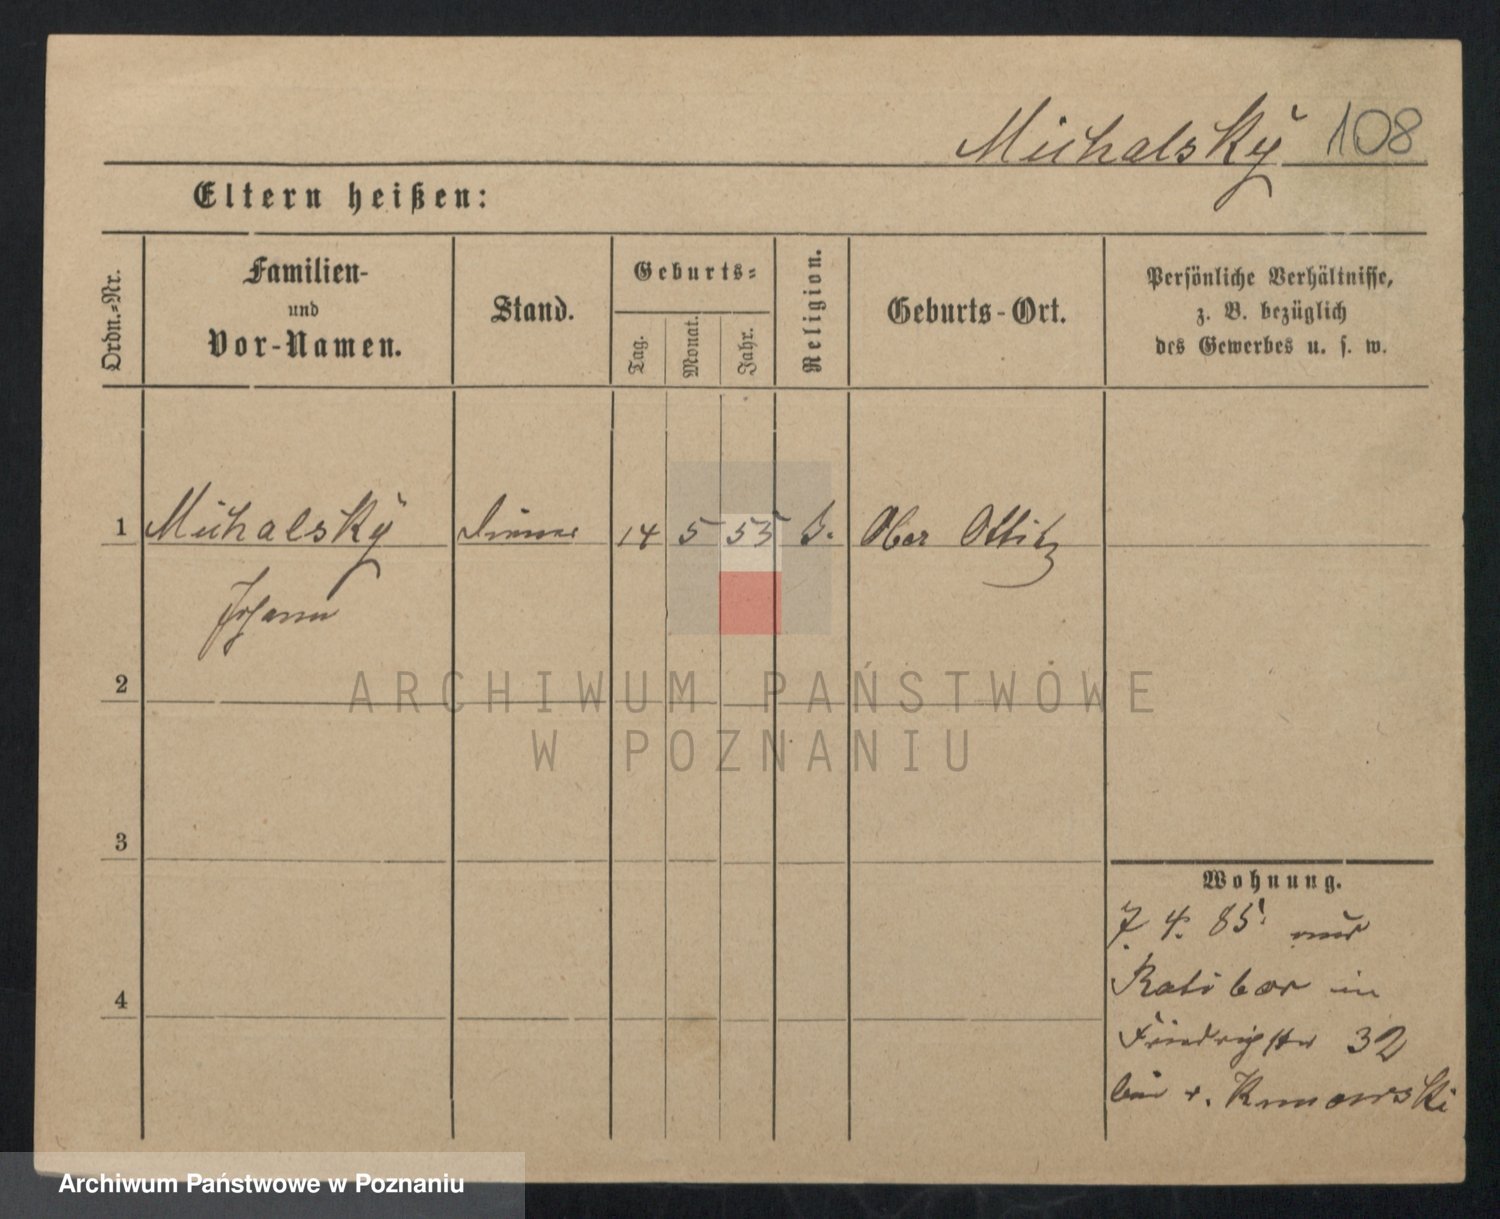 Michalsky 108
Eltern heißen:
Ordn.-Nr.
Familien-
und
Vor-Namen.
Stand.
Geburts-
Tag.
Monat.
Jahr.
Religion.
Geburts-Ort.
Persönliche Verhältnisse,
z. B. bezüglich
des Gewerbes u. s. w.
1 Michalsky Diener 14 5 55 Ober Ottitz
Johann
2
ARCHIWUM PAŃSTWOWE
W POZNANIU
3
4
Wohnung.
7. 4. 85. aus
Ratibor in
Friedrichstr 32
bei v. Kunowski
Archiwum Państwowe w Poznaniu